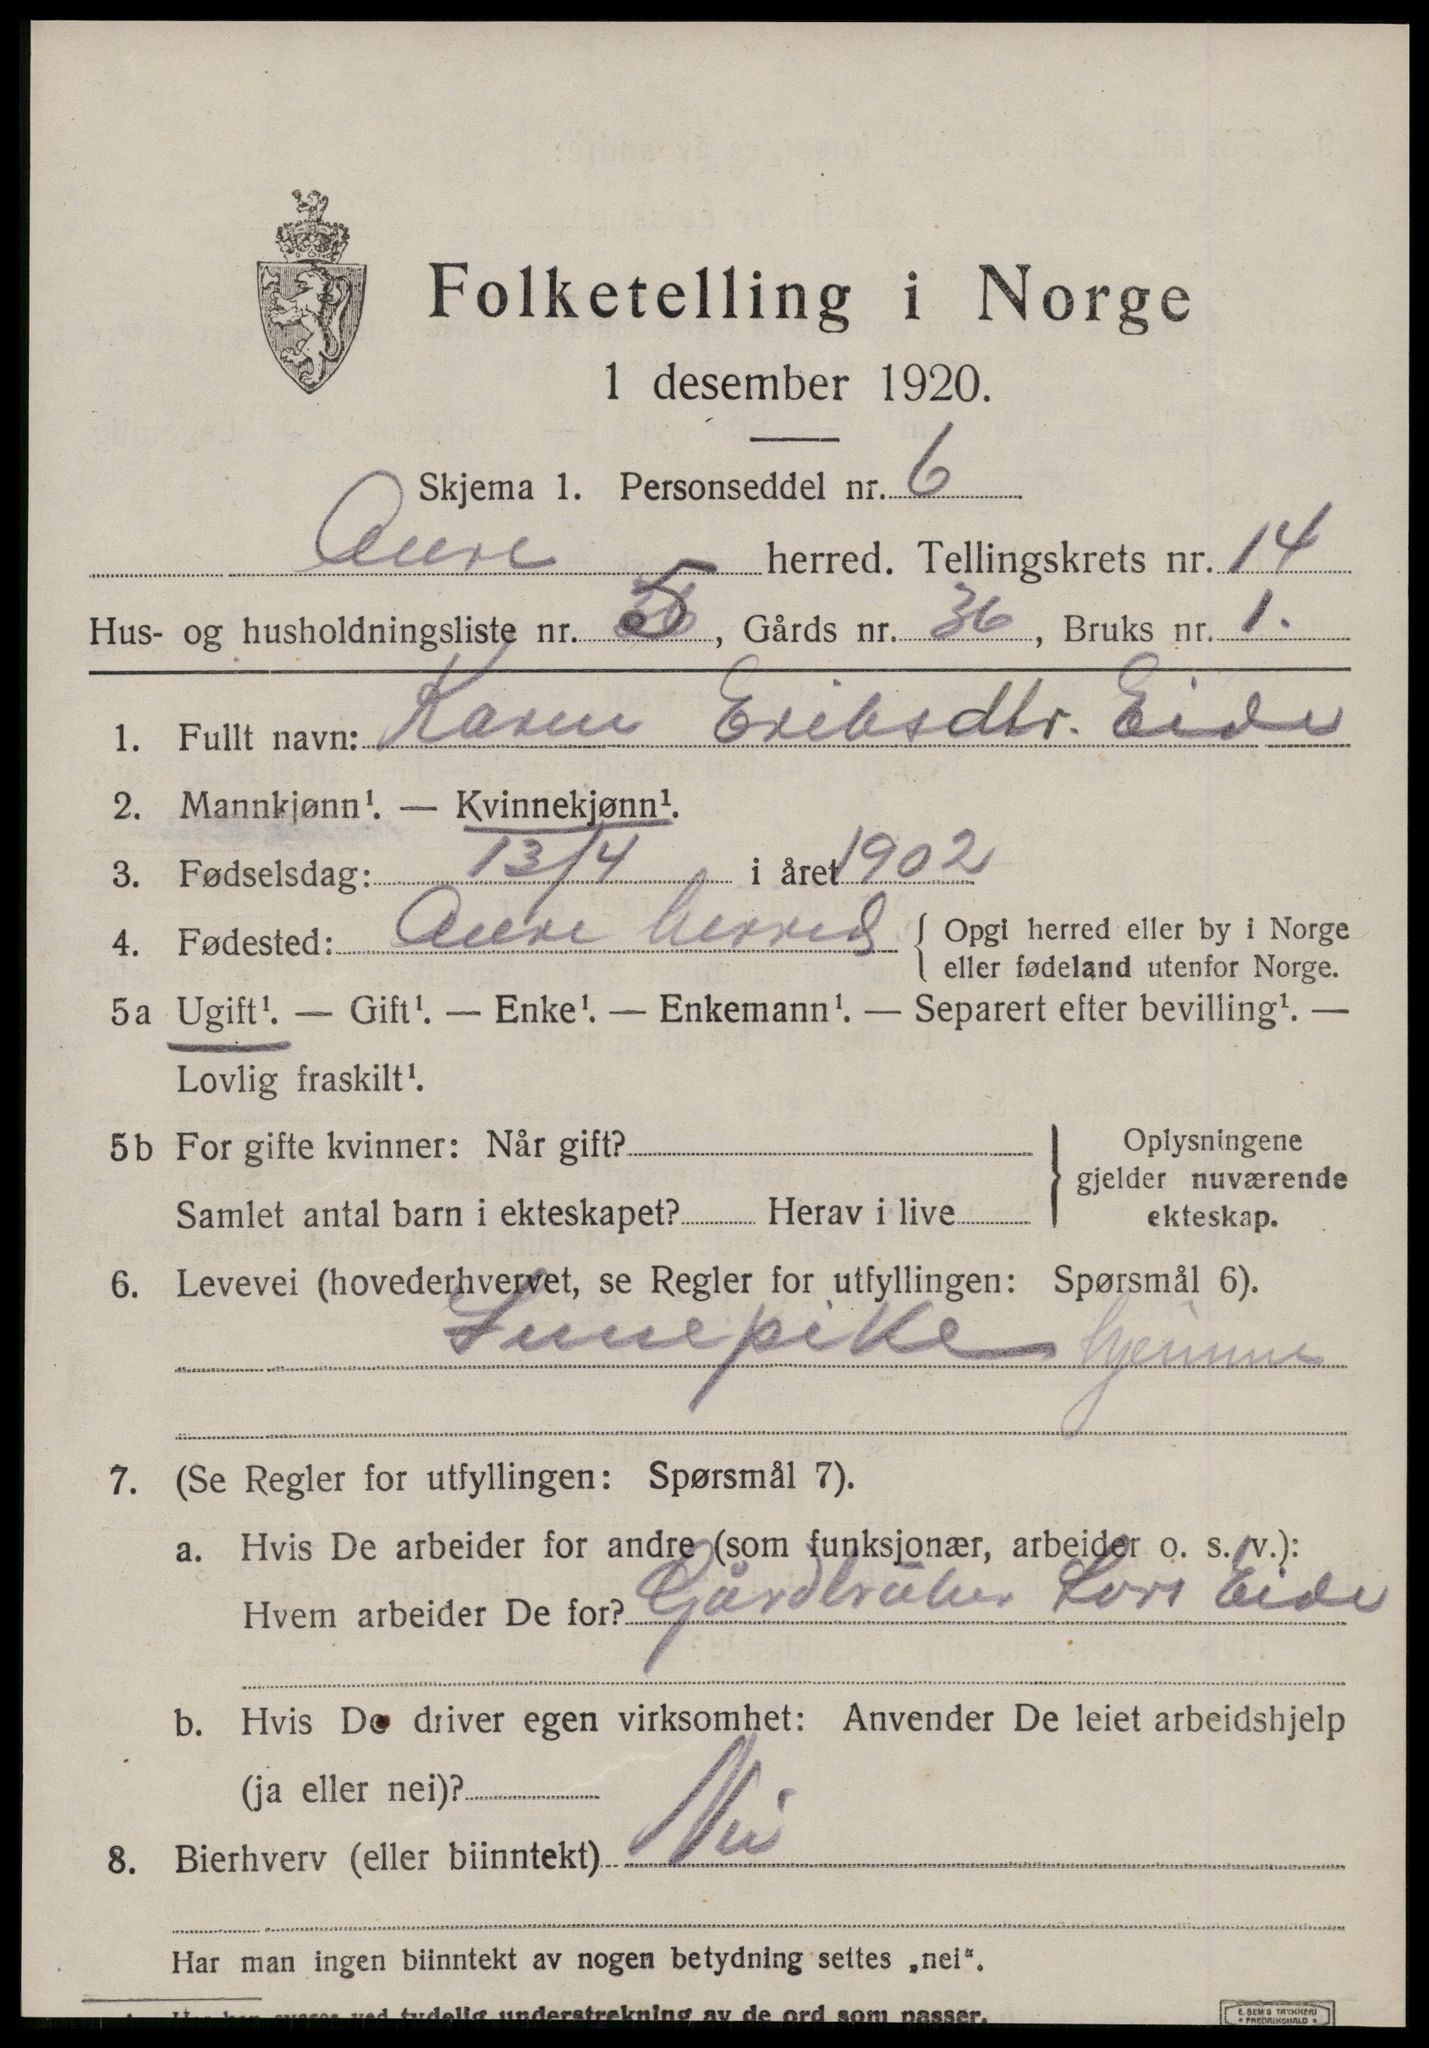 Folketelling i Norge
1 desember 1920.
Skjema 1. Personseddel nr. 6
Aure herred. Tellingskrets nr. 14
Hus- og husholdningsliste nr. 5, Gårds nr. 36, Bruks nr. 1.
1. Fullt navn: Karen Eriksdtr. Eide
2. Mannkjønn¹. — Kvinnekjønn¹.
3. Fødselsdag: 13/4 i året 1902
4. Fødested: Aure herred { Opgi herred eller by i Norge
eller fødeland utenfor Norge.
5a Ugift¹. — Gift¹. — Enke¹. — Enkemann¹. — Separert efter bevilling¹. —
Lovlig fraskilt¹.
5b For gifte kvinner: Når gift? } Oplysningene
gjelder nuværende
Samlet antal barn i ekteskapet? Herav i live ekteskap.
6. Levevei (hovederhvervet, se Regler for utfyllingen: Spørsmål 6).
hjemme
7. (Se Regler for utfyllingen: Spørsmål 7).
a. Hvis De arbeider for andre (som funksjonær, arbeider o. s. v.):
Hvem arbeider De for? Gårdbruker Lars Eide
b. Hvis De driver egen virksomhet: Anvender De leiet arbeidshjelp
(ja eller nei)?
8. Bierhverv (eller biinntekt) Nei
Har man ingen biinntekt av nogen betydning settes „nei“.
1. Her kan svares ved tydelig understrekning av de ord som passer.
E. SEM'S TRYKKERI
FREDRIKSHALD